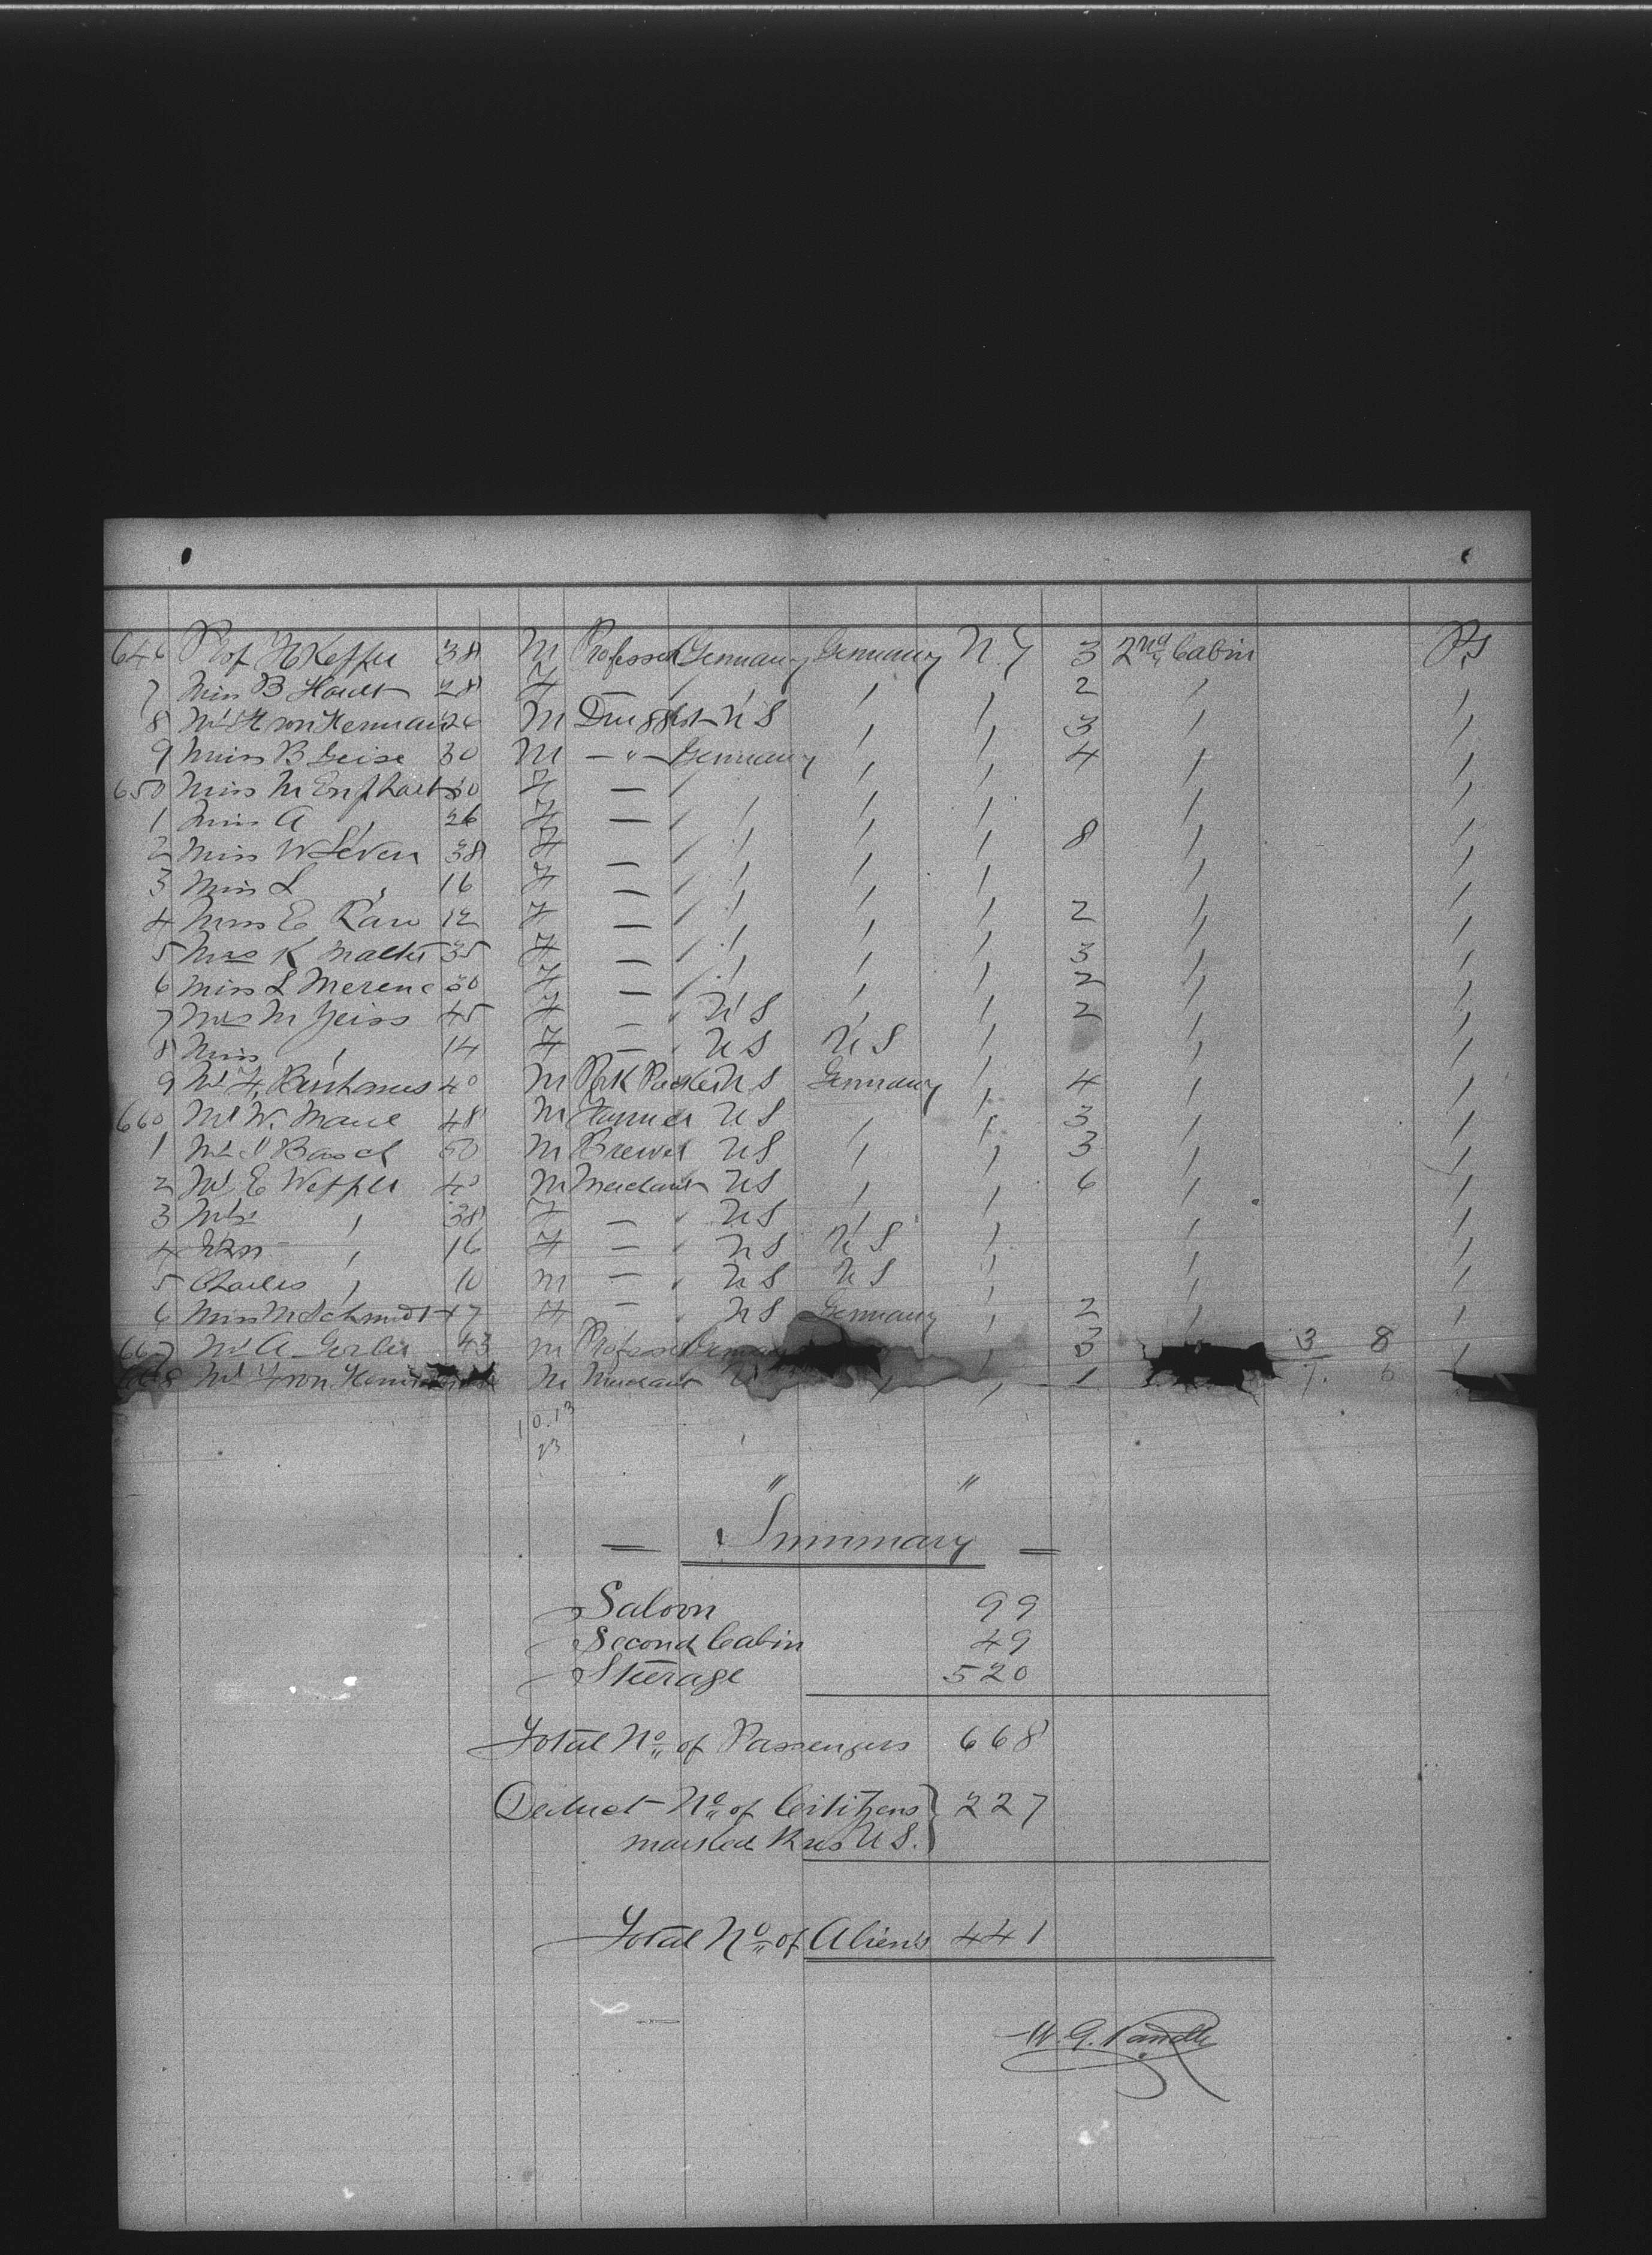 646 Prof H Keffer 38 M Professor Germany Germany N.Y 3 2nd Cabin Ps
7 Miss B 28 F — 2
8 Mr H von Hermann 26 M Druggist U S 3
9 Miss B Geise 30 M — " — Germany 4
650 Miss M 30 F —
1 Miss A 26 F —
2 Miss W Leven 38 F — 8
3 Miss L 16 F —
4 Miss E Raw 12 F — 2
5 Mrs K Malter 35 F — 3
6 Miss L F — 2
7 Mrs M Zeiss 45 F — U S 2
8 Miss 14 F — U S U S
9 Mr 40 M Pork Packer U S Germany 4
660 Mr W. 48 M Farmer U S 3
1 Mr Basch 50 M Brewer U S 3
2 Mr E Weffler 40 M Merchant U S 6
3 Mrs 38 F — U S
4 16 F — U S U S
5 Charles 10 M — U S U S
6 Miss M Schmidt 17 F — U S Germany 2
667 Mr A 43 M Professor 3 3 8
Mr von M Merchant 1
10.13
23
— Summary —
Saloon 99
Second Cabin 49
Steerage 520
Total No of Passengers 668
Deduct No of Citizens } 227
marked thus U S.
Total No of Aliens 441
W. G.